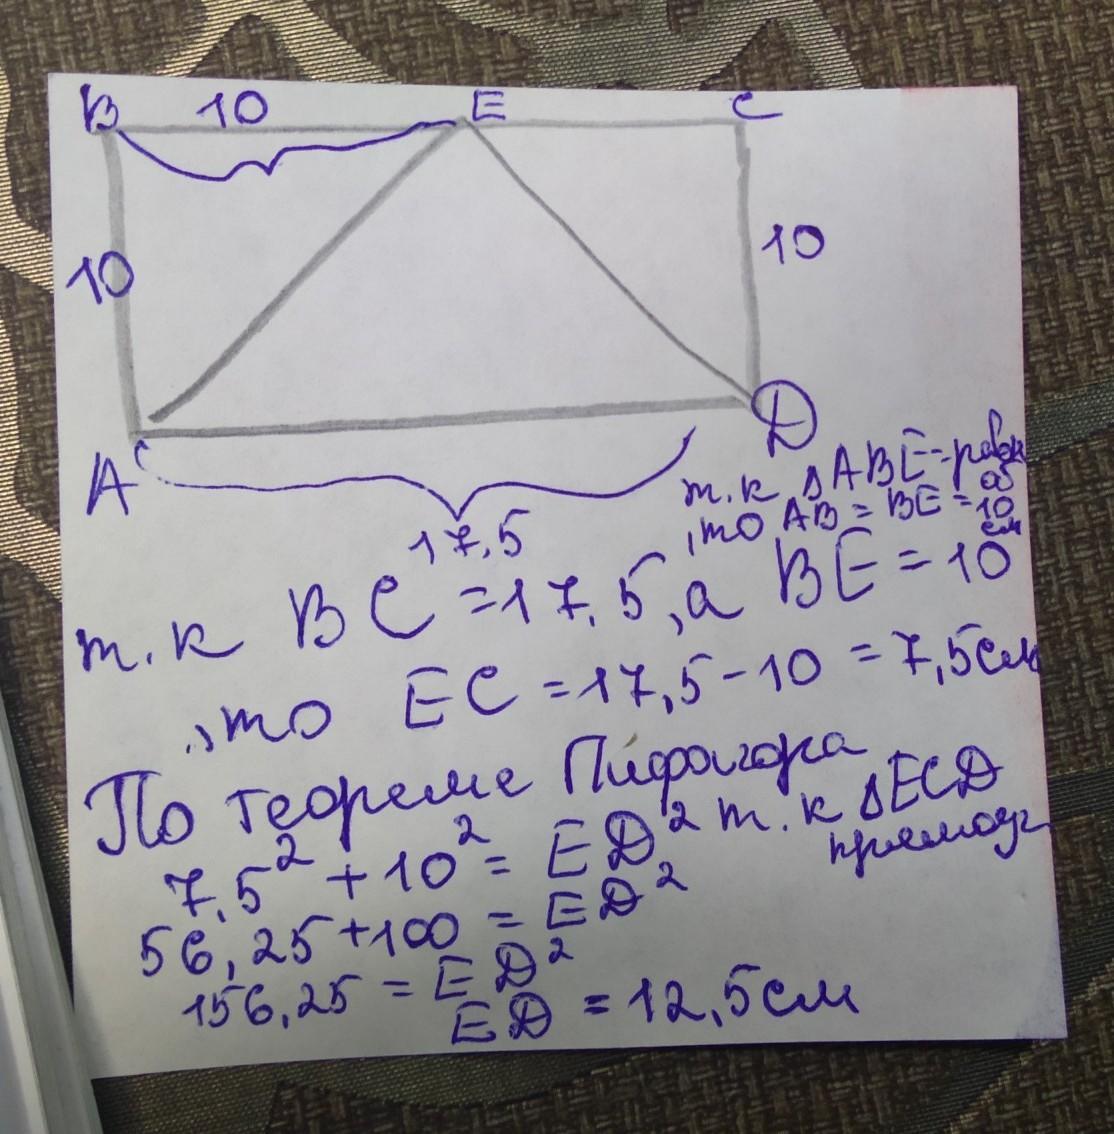 B 10 E C
10 10
A D
17,5
т.к ΔABE-равн
об
,то AB = BE = 10
см
т.к BC = 17,5, а BE = 10
,то EC = 17,5 - 10 = 7,5см
По теореме Пифагора
7,5² + 10² = ED² т.к ΔECD
прямоуг
56,25 + 100 = ED²
156,25 = ED²
ED = 12,5см